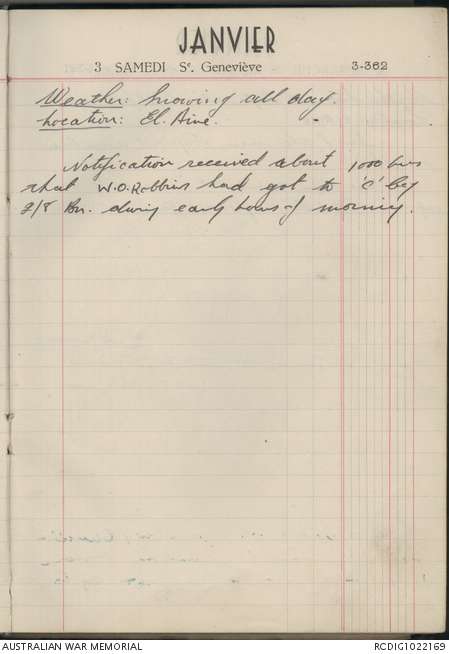 JANVIER
3 SAMEDI Se. Geneviève 3-362
Weather: Snowing all day.
Location: El. Aine.
Notification received about 1000 hrs
that W.O. Robbins had got to 'C' by
2/8 Bn. during early hours of morning.
AUSTRALIAN WAR MEMORIAL RCDIG1022169